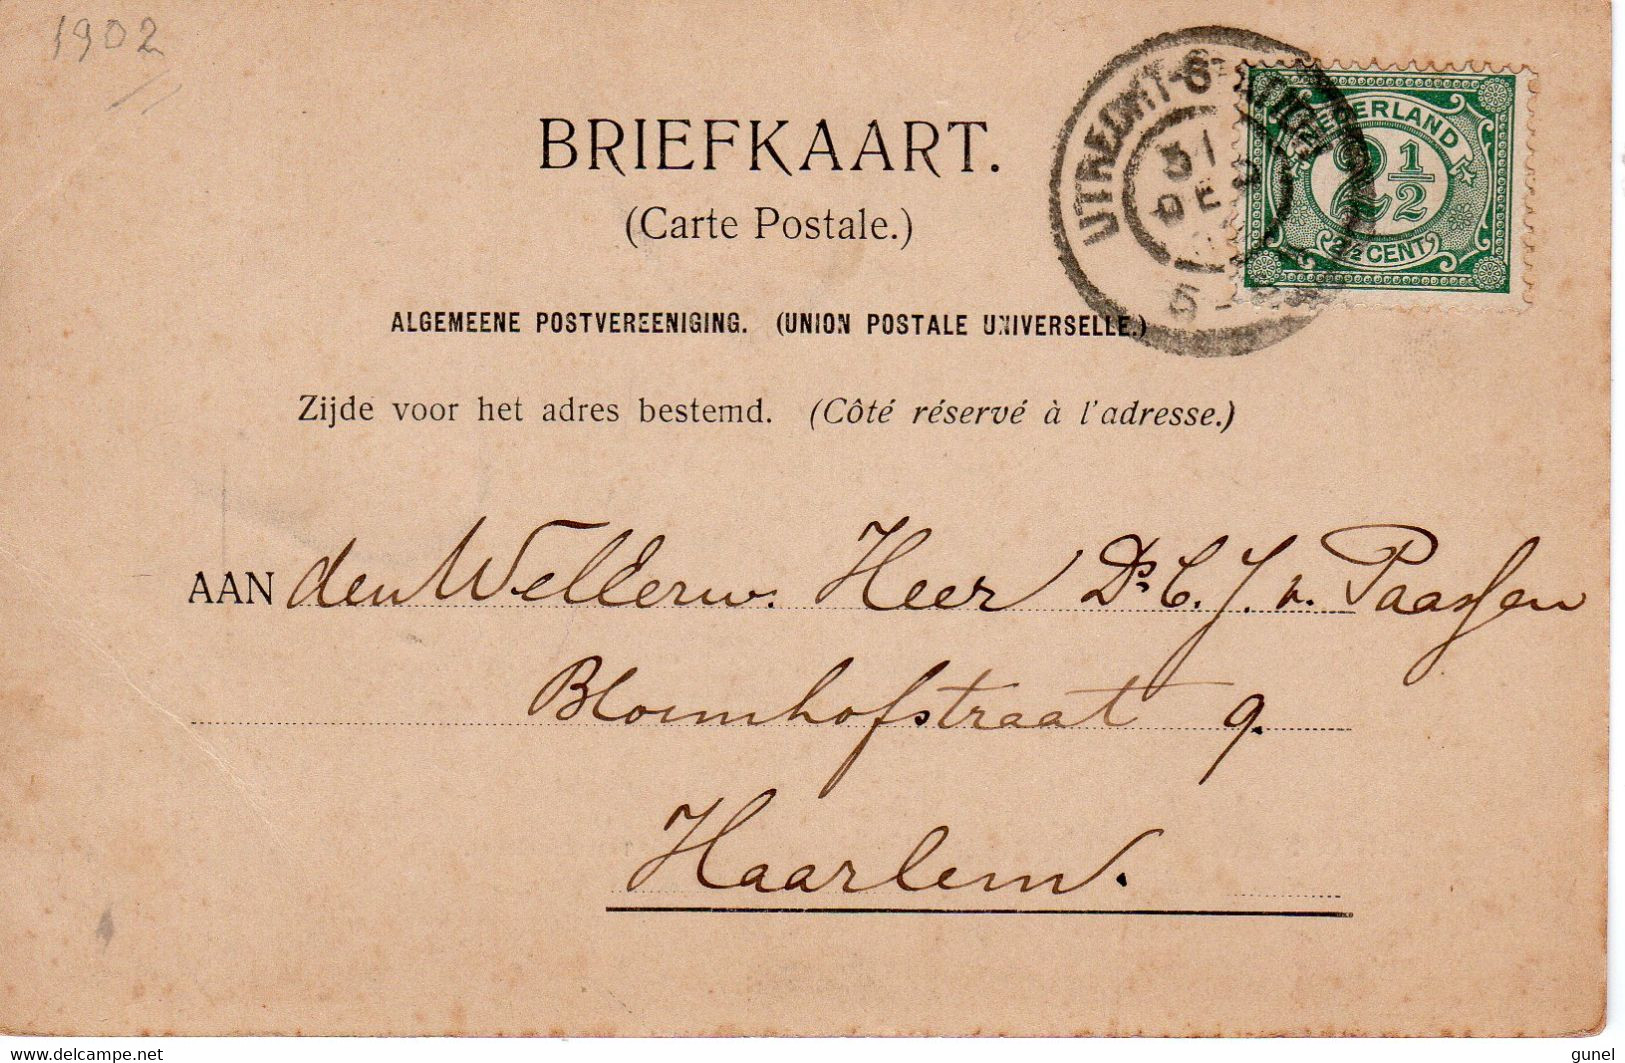 1902
BRIEFKAART.
(Carte Postale.)
UTRECHT-STATION
31
DEC
NEDERLAND
2 1/2
2 1/2 CENT
ALGEMEENE POSTVEREENIGING. (UNION POSTALE UNIVERSELLE.)
Zijde voor het adres bestemd. (Côté réservé à l'adresse.)
AAN den WelEerw. Heer Ds. C. J. v. Paassen
Bloemhofstraat 9.
Haarlem.
https://www.delcampe.net
gunel